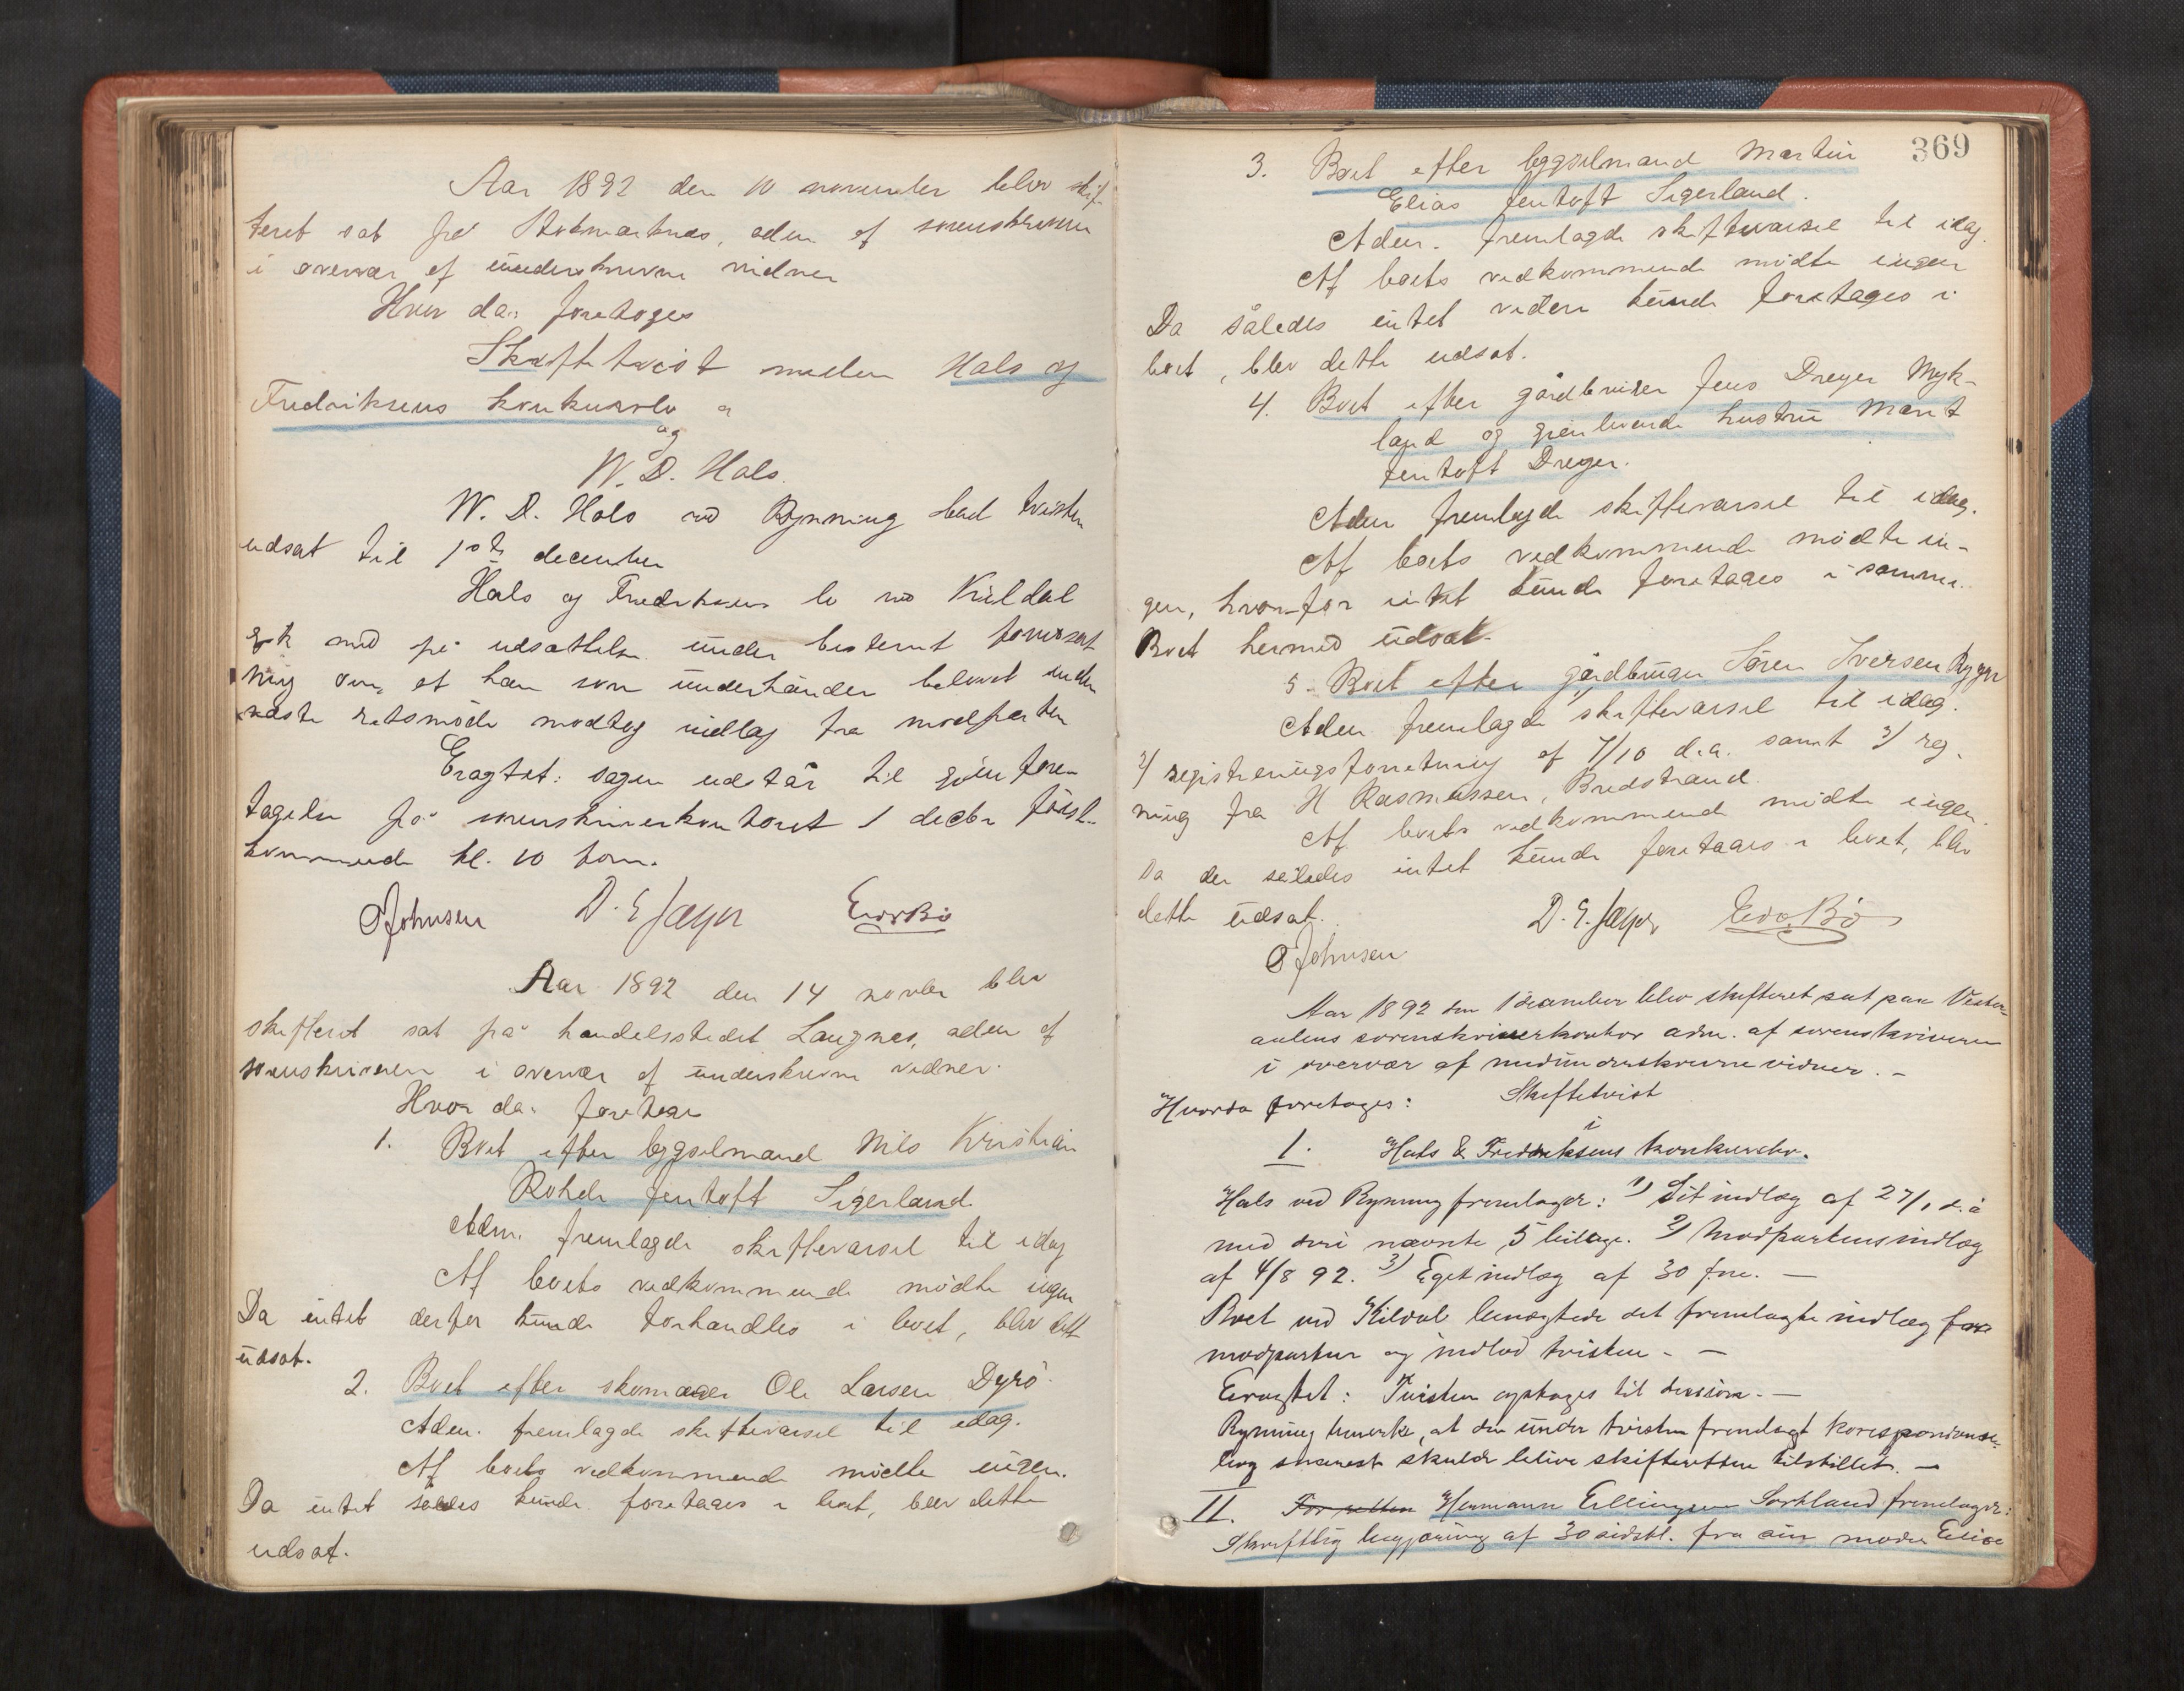 Aar 1892 den 10 november blev skif-
teret sat på Stokmarknes, adm. af sorenskriveren
i overvær af underskrevne vidner
Hvor da: foretoges
Skiftetvist mellem Hals og
Fredriksens konkursbo
og
W. D. Hals.
W. D. Hals ved Rynning bad tvisten
udsat til 1ste december
Hals og Fredriksens bo ved Kildal
gik med på udsættelse under bestemt forudsæt
ning om, at han som underhånden belovet inden
næste retsmöde modtog indlæg fra modparten
Eragtet: sagen udstår til gjenfore-
tagelse på sorenskriverkontoret 1 decbr först-
kommende kl. 10 form.
OJohnsen D. E Jæger EivBö
Aar 1892 den 14 novbr blev
skifteret sat på handelsstedet Langnes, adm. af
sorenskriveren i overvær af underskrevne vidner.
Hvor da: foretoges
1. Boet efter bygselmand Nils Kristian
Rohde Jentoft Sigerland.
Adm. fremlagde skiftevarsel til idag
Af boets vedkommende mödte ingen
Da intet derfor kunde forhandles i boet, blev dette
udsat.
2. Boet efter skomager Ole Larsen Dyrö.
Adm. fremlagde skiftevarsel til idag.
Af boets vedkommende mödte ingen.
Da intet således kunde foretages i boet, blev dette
udsat.
369
3. Boet efter bygselmand Martin
Elias Jentoft Sigerland.
Adm. fremlagde skiftevarsel til idag.
Af boets vedkommende mödte ingen
Da således intet videre kunde foretages i
boet, blev dette udsat.
4. Boet efter gårdbruger Jens Dreyer Myk-
land og gjenlevende hustru Marit
Jentoft Dreyer.
Adm fremlagde skiftevarsel til idag.
Af boets vedkommende mödte in-
gen, hvorfor intet kunde foretages i samme.
Boet hermed udsat.
5. Boet efter gårdbruger Sören Iversen
Adm. fremlagde skiftevarsel til idag.
2/ registreringsforretning af 7/10 d.a. samt 3/ reg-
ning fra H Rasmussen, Bredstrand.
Af boets vedkommende mödte ingen.
Da der således intet kunde foretages i boet, blev
dette udsat.
D. E. Jæger EivBö
OJohnsen
Aar 1892 den 1 december blev skifteret sat paa Vester-
aalens sorenskriverkontor adm. af sorenskriveren
i overvær af medunderskrevne vidner. -
Hvorda foretoges: Skiftetvist
i
I. Hals & Fredriksens konkursbo.
Hals ved Rynning fremlagde: 1) Sit indlæg af 27/ d. å
med deri nævnte 5 bilage. 2) Modpartens indlæg
af 4/8 92. 3) Eget indlæg af 30 f.m. -
Boet ved Kildal benægtede det fremlagte indlæg fra
modparten og indlod tvisten - -
Eragtet: Tvisten optages til decision. -
Rynning bemærker, at den under tvisten fremlagt korrespondanse-
bog snarest skulde blive skifteretten tilstillet. -
II. For retten Hermann Ellingsen Sortland fremlagde:
Skriftlig begjæring af 30 sidstl. fra sin moder Elise